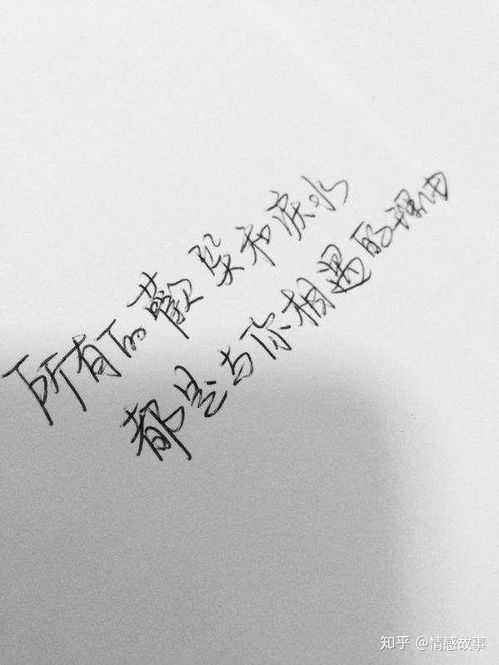 所有的歡笑和淚水
都是与你相遇的理由
知乎 @情感故事